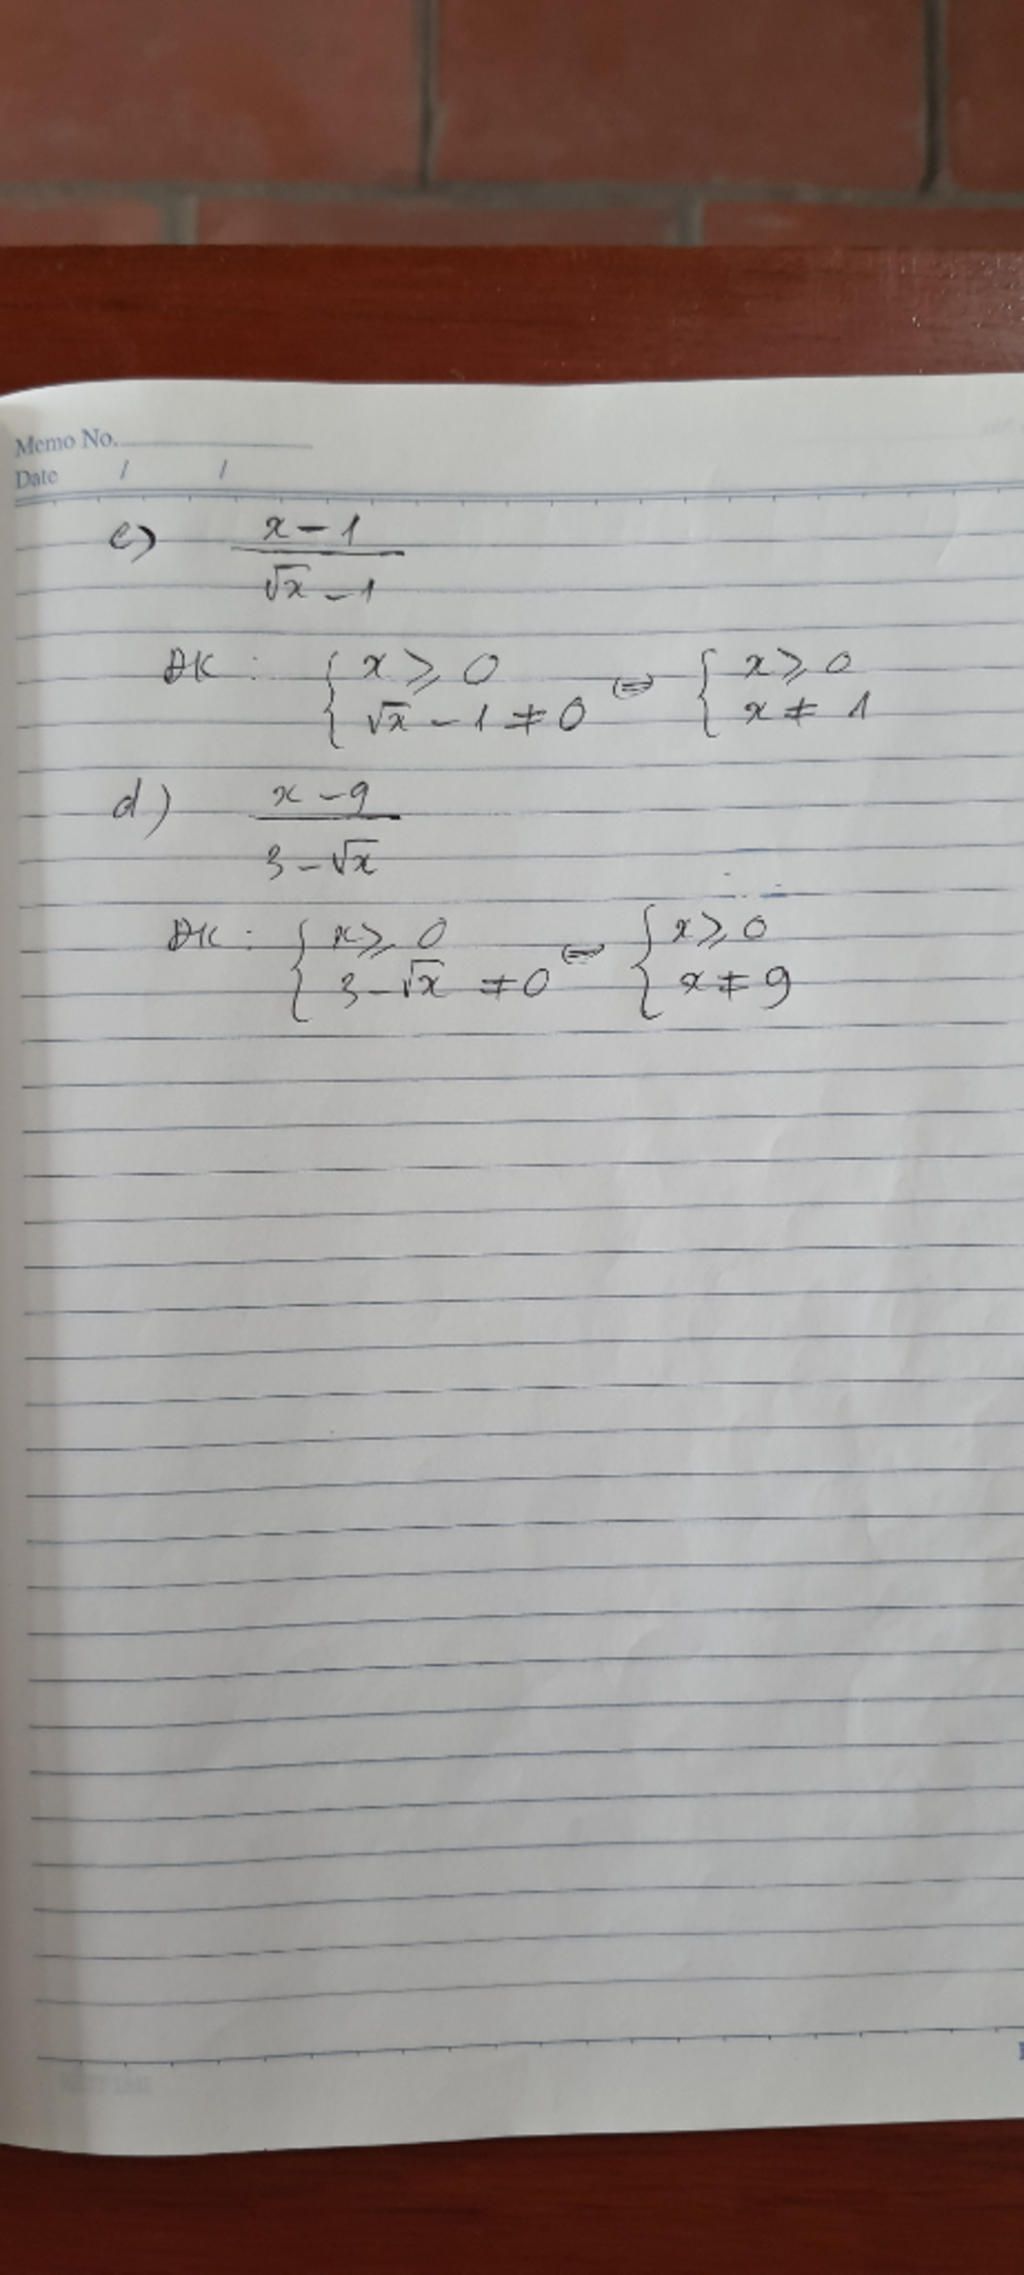 Memo No.
Date / /
c) x - 1 / √x - 1
ĐK : { x ⩾ 0 ; √x - 1 ≠ 0 ⇔ { x ⩾ 0 ; x ≠ 1
d) x - 9 / 3 - √x
ĐK : { x ⩾ 0 ; 3 - √x ≠ 0 ⇔ { x ⩾ 0 ; x ≠ 9